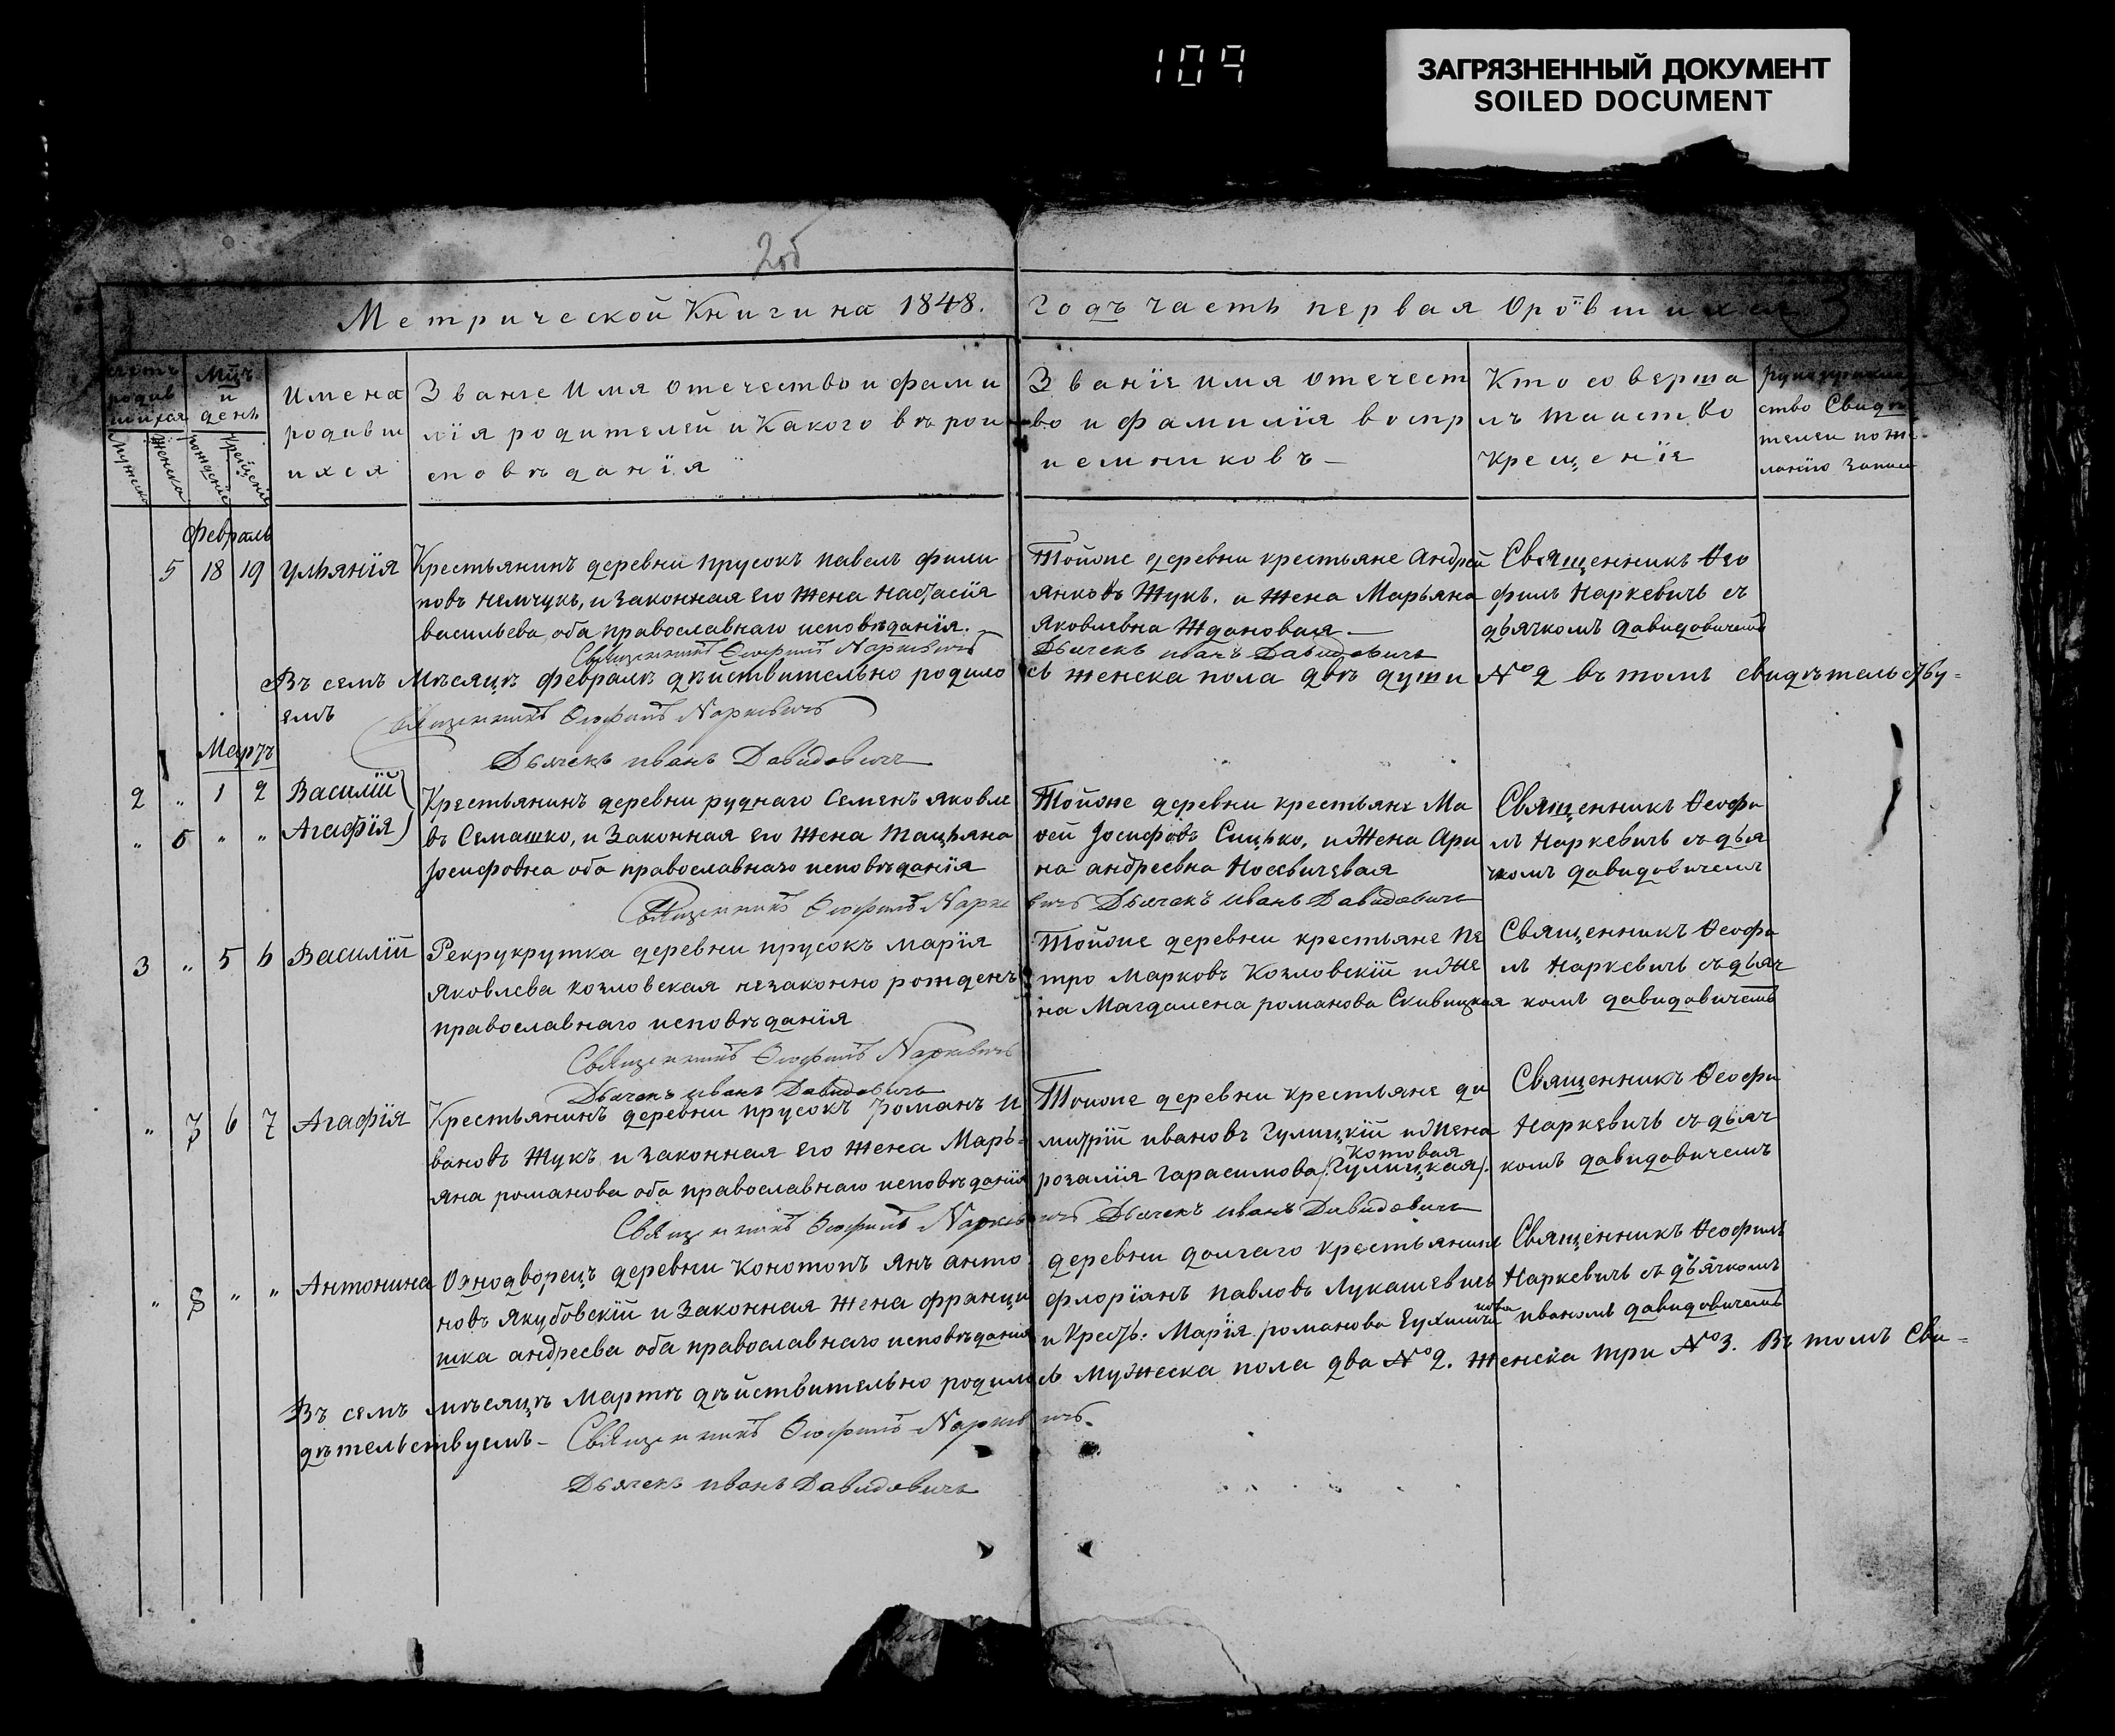 109
ЗАГРЯЗНЕННЫЙ ДОКУМЕНТ
SOILED DOCUMENT
2об
Метрической Книги на 1848. годъ часть первая О
3
родив шихся
Мцъ и день
Имена родивш ихся
Званіе Имя отечество и фами
лія родителей и Какого върои
сповѣданія
Званіе имя отечест
во и фамилія воспр
иемниковъ —
Кто соверша
лъ таинство
крещеніе
ство Свидѣ
телей по же
ланію
Мужска
Женска
рожденіе
крещеніе
февраль
5 18 19 Ульянія
Крестьянинъ деревни прусокъ павелъ фили
повъ Немчукъ, и законная Его Жена Настасія
васильева, оба православнаго исповѣданія.
Тойоже деревни крестьяне андрей
янковъ Жукъ. и Жена Марьяна
Яковлевна Ждановая —
Священникъ Ѳео
филъ Наркевичъ съ
дьячкомъ давидовичемъ
Священникъ Ѳеофилъ Наркевичъ
Дьячекъ иванъ Давидовичъ
Въ семъ Мѣсяцѣ февралѣ дѣйствительно родило сь женска пола двѣ души № 2 въ томъ свидѣтельству-
емъ
Священникъ Ѳеофилъ Наркевичъ
Дьячекъ иванъ Давидовичъ
Мартъ
2 „ 1 2 Василій
„ 6 „ „ Агафія
Крестьянинъ деревни руднаго Семенъ яковле
въ Семашко, и Законная Его Жена Тацьяна
Іосифовна оба православнаго исповѣданія
Тойоже деревни крестьяне Ма
ѳей Іосифовъ Сицько, и Жена Ари
на андреевна Носевичевая
Священникъ Ѳеофи
лъ Наркевичъ съ дья
чкомъ давидовичемъ
Священникъ Ѳеофилъ Наркевичъ Дьячекъ Иванъ Давидовичъ
3 „ 5 6 Василій
Рекрукрутка деревни прусокъ Марія
Яковлева козловская незаконно рожденъ
православнаго исповѣданія
Тойоже деревни крестьяне Пе
тро Марковъ Козловскій и Же
на Магдалена романова Скивицкая
Священникъ Ѳеофи
лъ Наркевичъ съ дьяч
комъ давидовичемъ
Священникъ Ѳеофилъ Наркевичъ
Дьячекъ иванъ Давидовичъ
„ 7 6 7 Агафія
Крестьянинъ деревни прусокъ романъ и
вановъ Жукъ и законная Его Жена Марь-
яна романова оба православнаго исповѣданія
Тойоже деревни крестьяне ди
митрій ивановъ Гулицкій и Жена
Котовая
розалія Гарасимова /:Гулицкая/.
Священникъ Ѳеофи
Наркевичъ съ дьяч
комъ давидовичемъ
Священникъ Ѳеофилъ Наркевичъ Дьячекъ иванъ Давидовичъ
„ 8 „ „ Антонина
Однодворецъ деревни конотопъ янъ анто
новъ Якубовскій и Законная Жена франци
шка андреева оба православнаго исповѣданія
деревни долгаго крестьянинъ
флоріанъ павловъ Лукашевичъ
и Кресть: Марія романова
Священникъ Ѳеофилъ
Наркевичъ съ дьячкомъ
иваномъ давидовичемъ
Въ семъ мѣсяцѣ Мартѣ дѣйствительно родилось мужеска пола два № 2. Женска три № 3. Въ томъ Сви-
дѣтельствуемъ — Священникъ Ѳеофилъ Наркевичъ.
Дьячекъ иванъ Давидовичъ